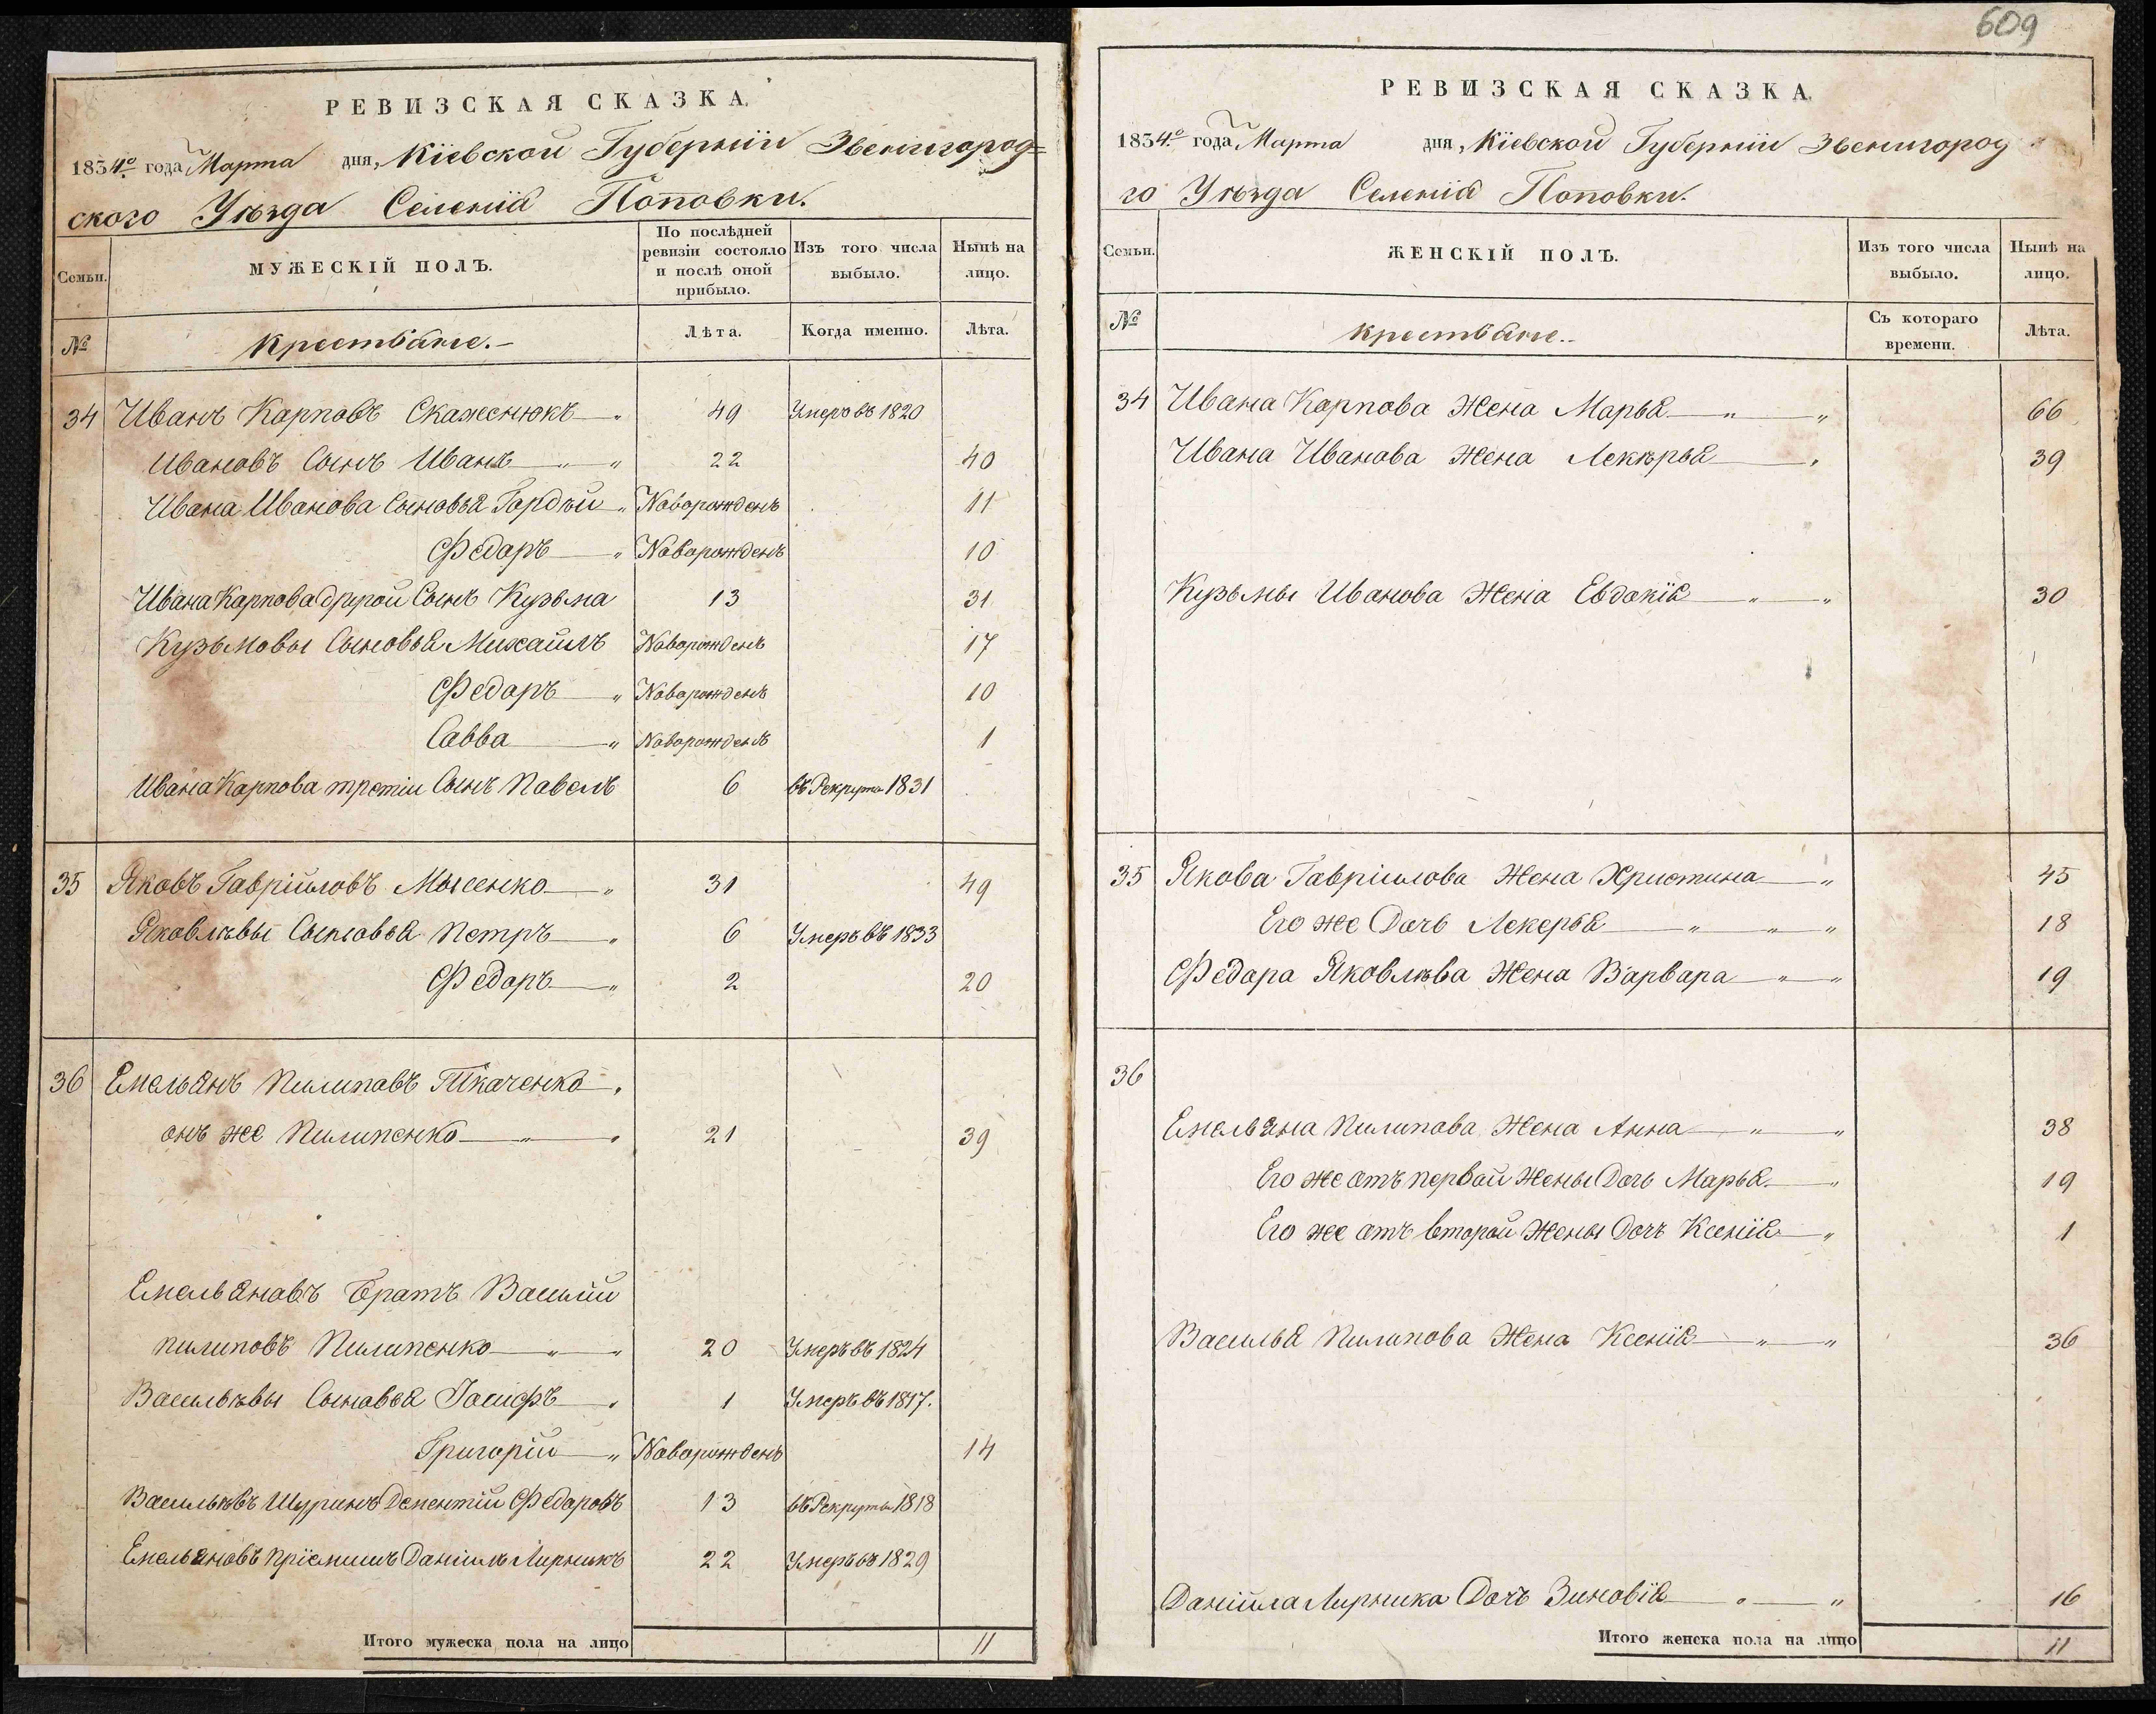 РЕВИЗСКАЯ СКАЗКА.
1834го года Марта дня, Кіевской Губерніи Звенигород=
ского Уѣзда Селенія Поповки.
Семьи.
МУЖЕСКІЙ ПОЛЪ.
По послѣдней
ревизіи состояло
и послѣ оной
прибыло.
Изъ того числа
выбыло.
Нынѣ на
лицо.
№
Крестьяне.
Лѣта.
Когда именно.
Лѣта.
34 Иванъ Карповъ Скаженюкъ 49 Умеръ въ 1820
Ивановъ Сынъ Иванъ 22 40
Ивана Иванова Сыновья Гордѣй Новорожденъ 11
Федоръ Новорожденъ 10
Ивана Карпова другой Сынъ Кузьма 13 31
Кузьмовы Сыновья Михайлъ Новорожденъ 17
Федоръ Новорожденъ 10
Савва Новорожденъ 1
Ивана Карпова третій Сынъ Павелъ 6 въ Рекруты 1831
35 Яковъ Гавріиловъ Мысенко 31 49
Яковлѣвы Сыновья Петръ 6 Умеръ въ 1833
Федоръ 2 20
36 Емельянъ Пилиповъ Ткаченко
онъ же Пилипенко 21 39
Емельяновъ Братъ Василій
пилиповъ Пилипенко 20 Умеръ въ 1824
Васильѣвы Сыновья Іосифъ 1 Умеръ въ 1817.
Григорій Новорожденъ 14
Васильѣвъ Шуринъ Дементій Федоровъ 13 въ Рекруты 1818
Емельяновъ пріемышъ Даніилъ Лирникъ 22 Умеръ въ 1829
Итого мужеска пола на лицо 11
609
РЕВИЗСКАЯ СКАЗКА.
1834го года Марта дня, Кіевской Губерніи Звенигород
го Уѣзда Селенія Поповки.
Семьи.
ЖЕНСКІЙ ПОЛЪ.
Изъ того числа
выбыло.
Нынѣ на
лицо.
№
Крестьяне.
Съ котораго
времени.
Лѣта.
34 Ивана Карпова Жена Марья 66
Ивана Иванова Жена Лекѣрья 39
Кузьмы Иванова Жена Евдокія 30
35 Якова Гавріилова Жена Христина 45
Его же Дочь Лекерья 18
Федора Яковлѣва Жена Варвара 19
36
Емельяна Пилипова Жена Анна 38
Его же отъ первой Жены Дочь Марья 19
Его же отъ второй Жены Дочъ Ксенія 1
Василья Пилипова Жена Ксенія 36
Даніила Лирника Дочъ Зиновія 16
Итого женска пола на лицо 11